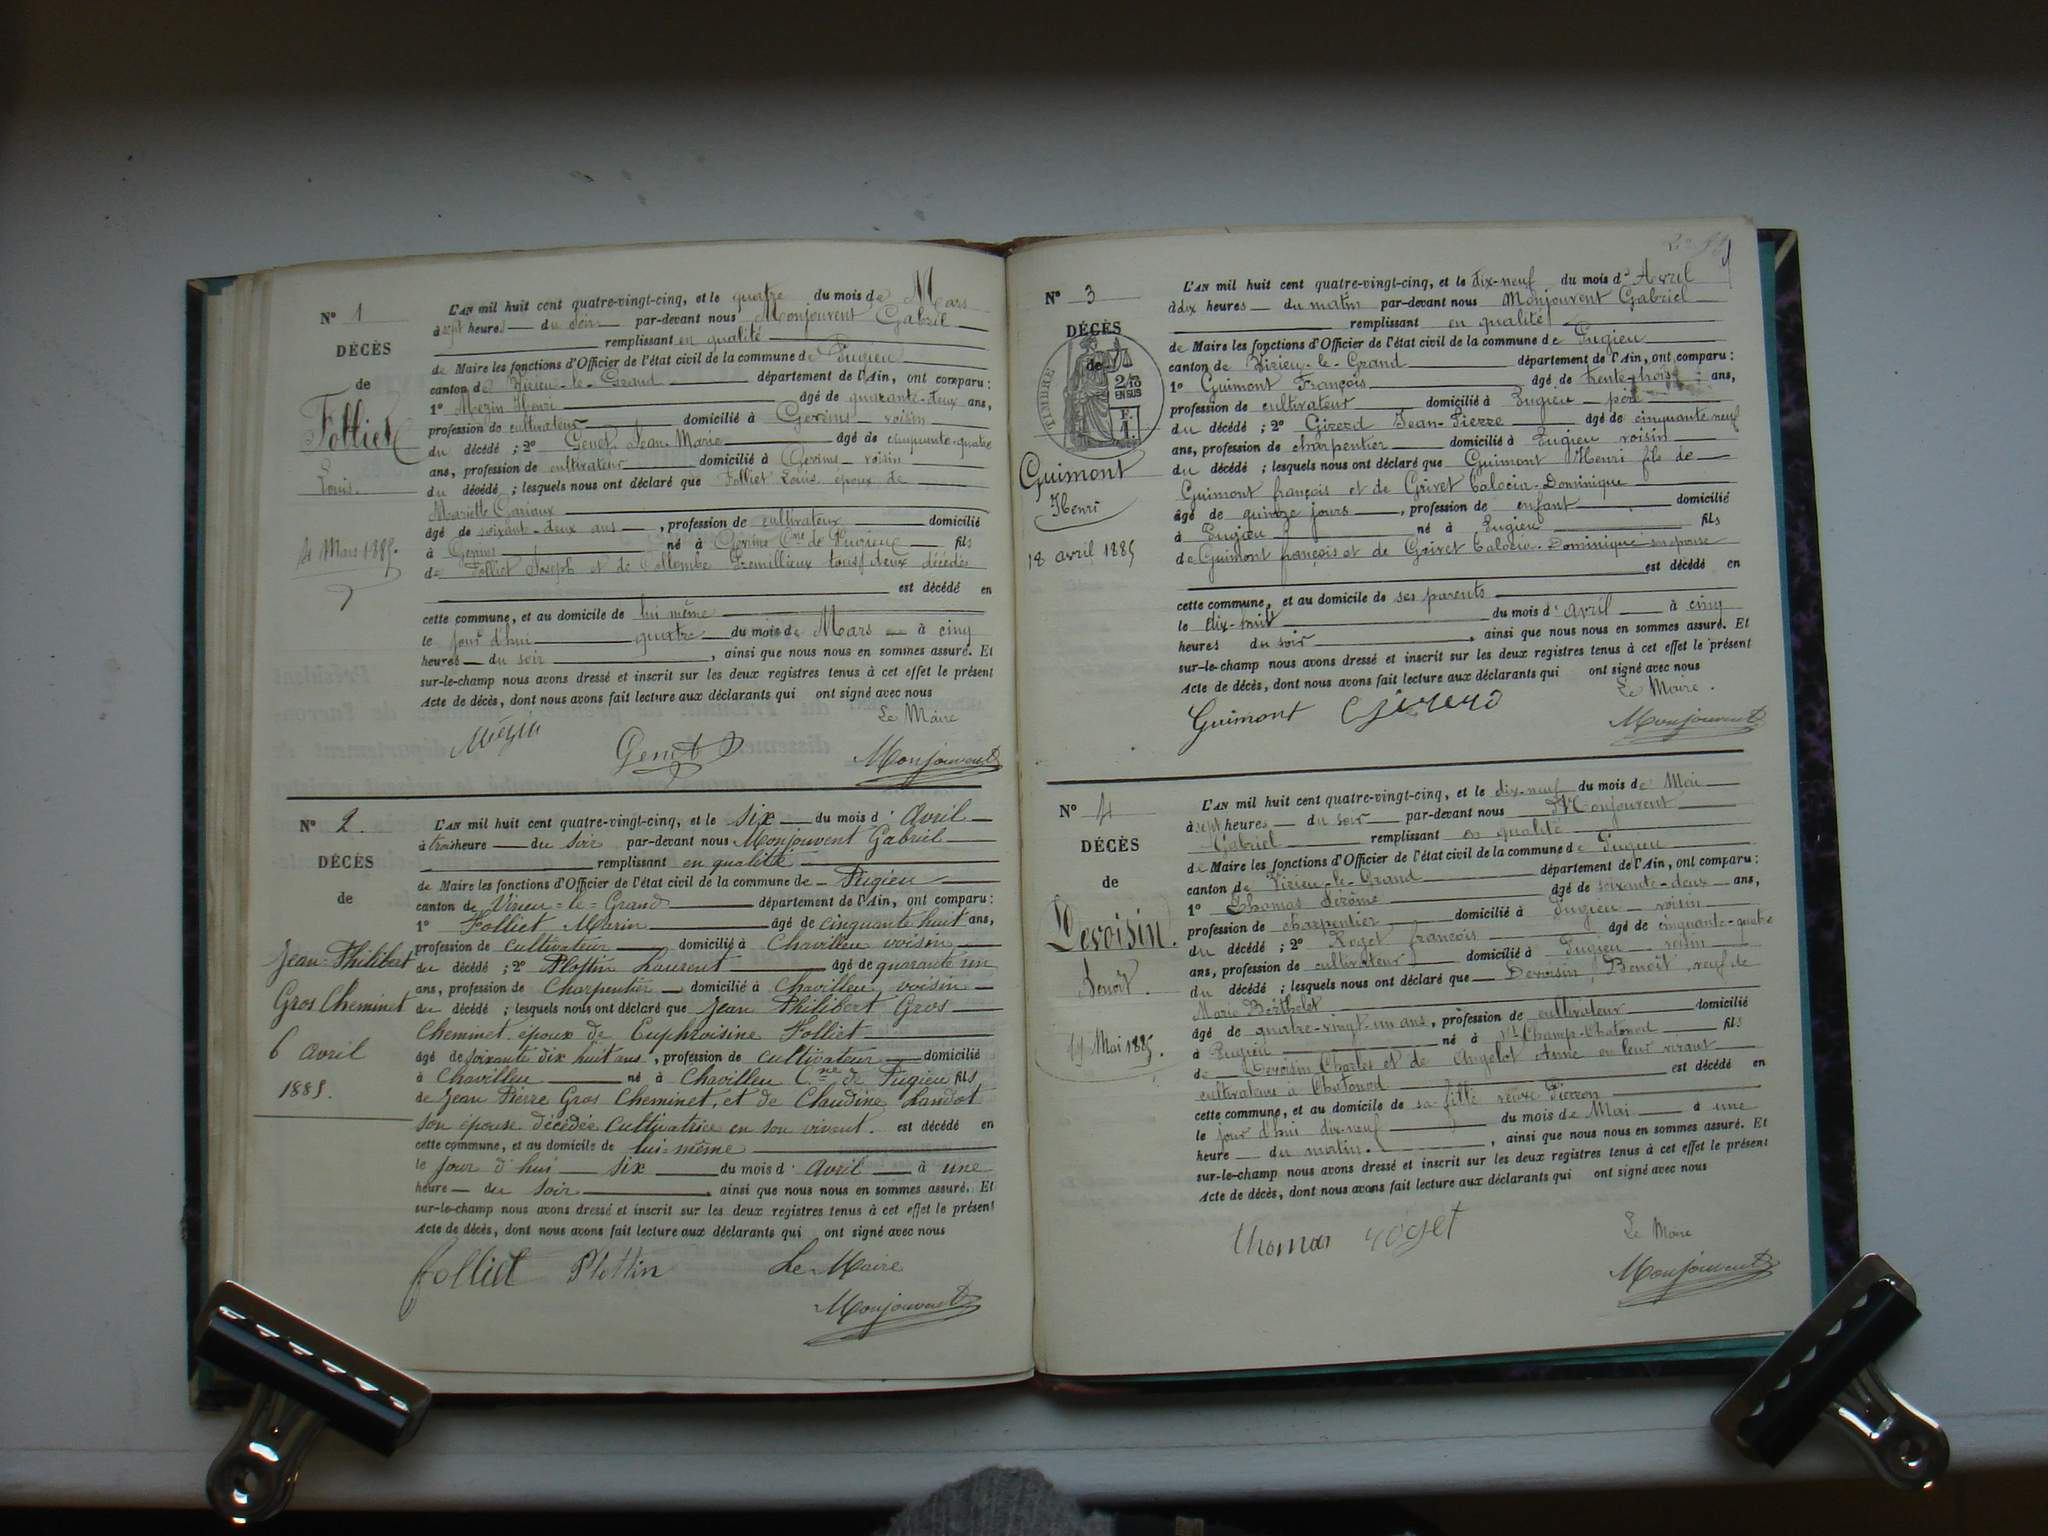 N° 1
DÉCÈS
de
Folliet
Louis.
4 Mars 1885.
L'AN mil huit cent quatre-vingt-cinq, et le quatre du mois de Mars
à sept heures du soir par-devant nous Monjouvent Gabriel
remplissant en qualité
de Maire les fonctions d'Officier de l'état civil de la commune de Pugieu
canton de Virieu-le-Grand département de l'Ain, ont comparu :
1° Mezin Henri âgé de quarante-deux ans,
profession de cultivateur domicilié à Gevrins voisin
du décédé ; 2° Genet Jean-Marie âgé de cinquante-quatre
ans, profession de cultivateur domicilié à Gevrins voisin
du décédé ; lesquels nous ont déclaré que Folliet Louis époux de
Mariette
âgé de soixant-deux ans, profession de cultivateur domicilié
à né à Cne de Pugieu fils
de Folliet Joseph et de tous deux décédés
est décédé en
cette commune, et au domicile de lui même
le jour d'hui quatre du mois de Mars à cinq
heures du soir, ainsi que nous nous en sommes assuré. Et
sur-le-champ nous avons dressé et inscrit sur les deux registres tenus à cet effet le présent
Acte de décès, dont nous avons fait lecture aux déclarants qui ont signé avec nous
Le Maire
Mézin Genet Monjouvent
N° 2.
DÉCÈS
de
Jean-Philibert
Gros Cheminet
6 avril
1885.
L'AN mil huit cent quatre-vingt-cinq, et le six du mois d'avril
à trois heure du soir par-devant nous Monjouvent Gabriel
remplissant en qualité
de Maire les fonctions d'Officier de l'état civil de la commune de Pugieu
canton de Virieu=le=Grand département de l'Ain, ont comparu :
1° Folliet Marin âgé de cinquante huit ans,
profession de cultivateur domicilié à Chavilleu voisin
du décédé ; 2° Plottin Laurent âgé de quarante un
ans, profession de Charpentier domicilié à Chavilleu, voisin
du décédé ; lesquels nous ont déclaré que Jean Philibert Gros
Cheminet époux de Euphroisine Folliet
âgé de soixante dix huit ans, profession de cultivateur domicilié
à Chavilleu né à Chavilleu Cne de Pugieu fils
de Jean Pierre Gros Cheminet, et de Claudine Landot
son épouse décédée cultivatrice en son vivent. est décédé en
cette commune, et au domicile de lui=même
le jour d'hui six du mois d'avril à une
heure du soir, ainsi que nous nous en sommes assuré. Et
sur-le-champ nous avons dressé et inscrit sur les deux registres tenus à cet effet le présent
Acte de décès, dont nous avons fait lecture aux déclarants qui ont signé avec nous
Folliet Plottin Le Maire
Monjouvent
N° 3
DÉCÈS
de
TIMBRE
2/10
EN SUS
F.
1.
Guimont
Henri
18 avril 1885
L'AN mil huit cent quatre-vingt-cinq, et le dix-neuf du mois d'Avril
à dix heures du matin par-devant nous Monjouvent Gabriel
remplissant en qualité
de Maire les fonctions d'Officier de l'état civil de la commune de Pugieu
canton de Virieu-le-Grand département de l'Ain, ont comparu :
1° Guimont François âgé de trente-trois ans,
profession de cultivateur domicilié à Pugieu père
du décédé ; 2° Girerd Jean-Pierre âgé de cinquante-neuf
ans, profession de charpentier domicilié à Pugieu voisin
du décédé ; lesquels nous ont déclaré que Guimont Henri fils de
Guimont françois et de Grivet Dominique
âgé de quinze jours, profession de enfant domicilié
à Pugieu né à Pugieu fils
de Guimont françois et de Grivet Dominique son épouse
est décédé en
cette commune, et au domicile de ses parents
le dix-huit du mois d'avril à cinq
heures du soir, ainsi que nous nous en sommes assuré. Et
sur-le-champ nous avons dressé et inscrit sur les deux registres tenus à cet effet le présent
Acte de décès, dont nous avons fait lecture aux déclarants qui ont signé avec nous
Le Maire.
Guimont Girerd Monjouvent
N° 4
DÉCÈS
de
Devoisin.
Benoit.
19 Mai 1885.
L'AN mil huit cent quatre-vingt-cinq, et le dix-neuf du mois de Mai
à sept heures du soir par-devant nous Monjouvent
Gabriel remplissant en qualité
de Maire les fonctions d'Officier de l'état civil de la commune de Pugieu
canton de Virieu-le-Grand département de l'Ain, ont comparu :
1° Thomas Jérôme âgé de soixante-deux ans,
profession de charpentier domicilié à Pugieu voisin
du décédé ; 2° Roget françois âgé de cinquante-quatre
ans, profession de cultivateur domicilié à Pugieu voisin
du décédé ; lesquels nous ont déclaré que Devoisin Benoit veuf de
Marie Berthelet
âgé de quatre-vingt-un ans, profession de cultivateur domicilié
à Pugieu né à St Champ-Chatonod fils
de Devoisin Charles et de Angelot Anne en leur vivant
cultivateurs à Chatonod est décédé en
cette commune, et au domicile de sa fille veuve Pierron
le jour d'hui dix-neuf du mois de Mai à une
heure du matin., ainsi que nous nous en sommes assuré. Et
sur-le-champ nous avons dressé et inscrit sur les deux registres tenus à cet effet le présent
Acte de décès, dont nous avons fait lecture aux déclarants qui ont signé avec nous
Thomas roget Le Maire
Monjouvent